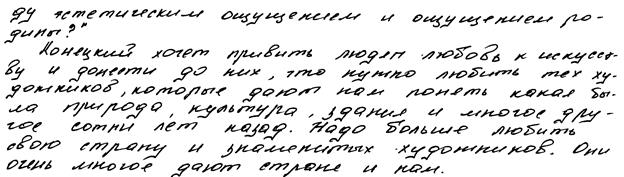 ду эстетическим ощущением и ощущением ро-
дины?"
Конецкий хочет привить людям любовь к искусст-
ву и донести до них, что нужно любить тех ху-
дожников, которые дают нам понять какая бы-
ла природа, культура, здания и многое дру-
гое сотни лет назад. Надо больше любить
свою страну и знаменитых художников. Они
очень многое дают стране и нам.